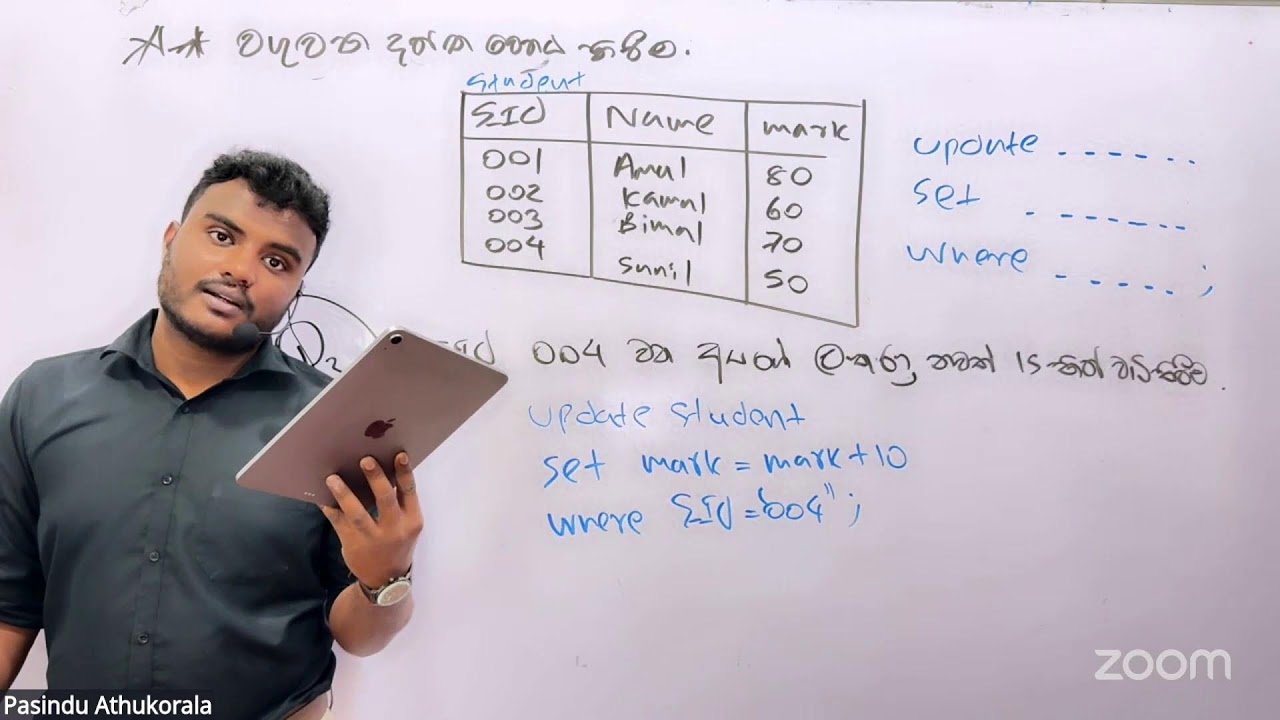 වගුවක දත්ත වෙනස් කිරීම.
Student
SID Name mark
001 Amal 80
002 Kamal 60
003 Bimal 70
004 Sunil 50
update ......
set .......
where ..... ;
004 වන අයගේ ලකුණු තවත් 15 කින් වැඩි කිරීම.
update student
set mark = mark + 10
where SID = "004" ;
zoom
Pasindu Athukorala